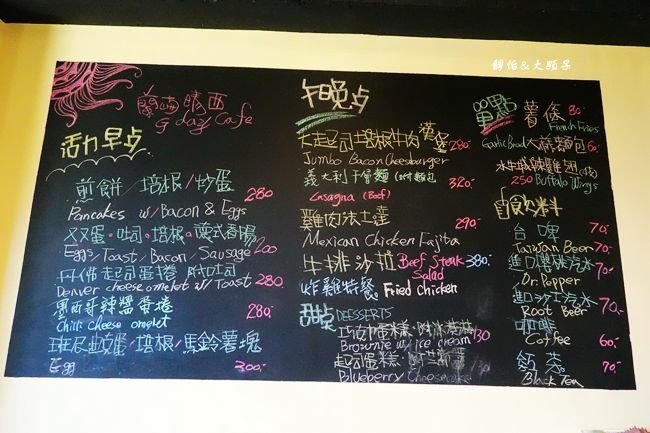 蘭嶼晴西
G'day Cafe
活力早点
煎餅/培根/炒蛋 280
Pancakes w/Bacon & Eggs
双蛋・吐司・培根・德式香腸
Eggs/Toast/Bacon/Sausage 200
丹佛起司蛋捲 附吐司
Denver cheese omelet w/Toast 280
墨西哥辣醬蛋捲 280
Chilli cheese omelet
班尼迪克蛋/培根/馬鈴薯塊
Egg 300
午晚点
大走起司培根牛肉漢堡 280
Jumbo Bacon Cheeseburger
義大利千層麵(附麵包 320
Lasagna (Beef)
雞肉法士達 290
Mexican Chicken Fajita
牛排沙拉 Beef Steak 380
Salad
炸雞特餐 Fried Chicken
甜点 DESSERTS
巧克力蛋糕 附冰淇淋 130
Brownie w/ice cream
起司蛋糕 130
Blueberry Cheesecake
餵怕&大顆呆
單點
薯條 80
French Fries
Garlic Bread 大蒜麵包 60
水牛城辣雞翅
250 Buffalo Wings
飲料
台啤 70
Taiwan Beer
進口櫻桃汽水 70
Dr Pepper
進口沙士汽水 70
Root Beer
咖啡 60
Coffee
紅茶 70
Black Tea